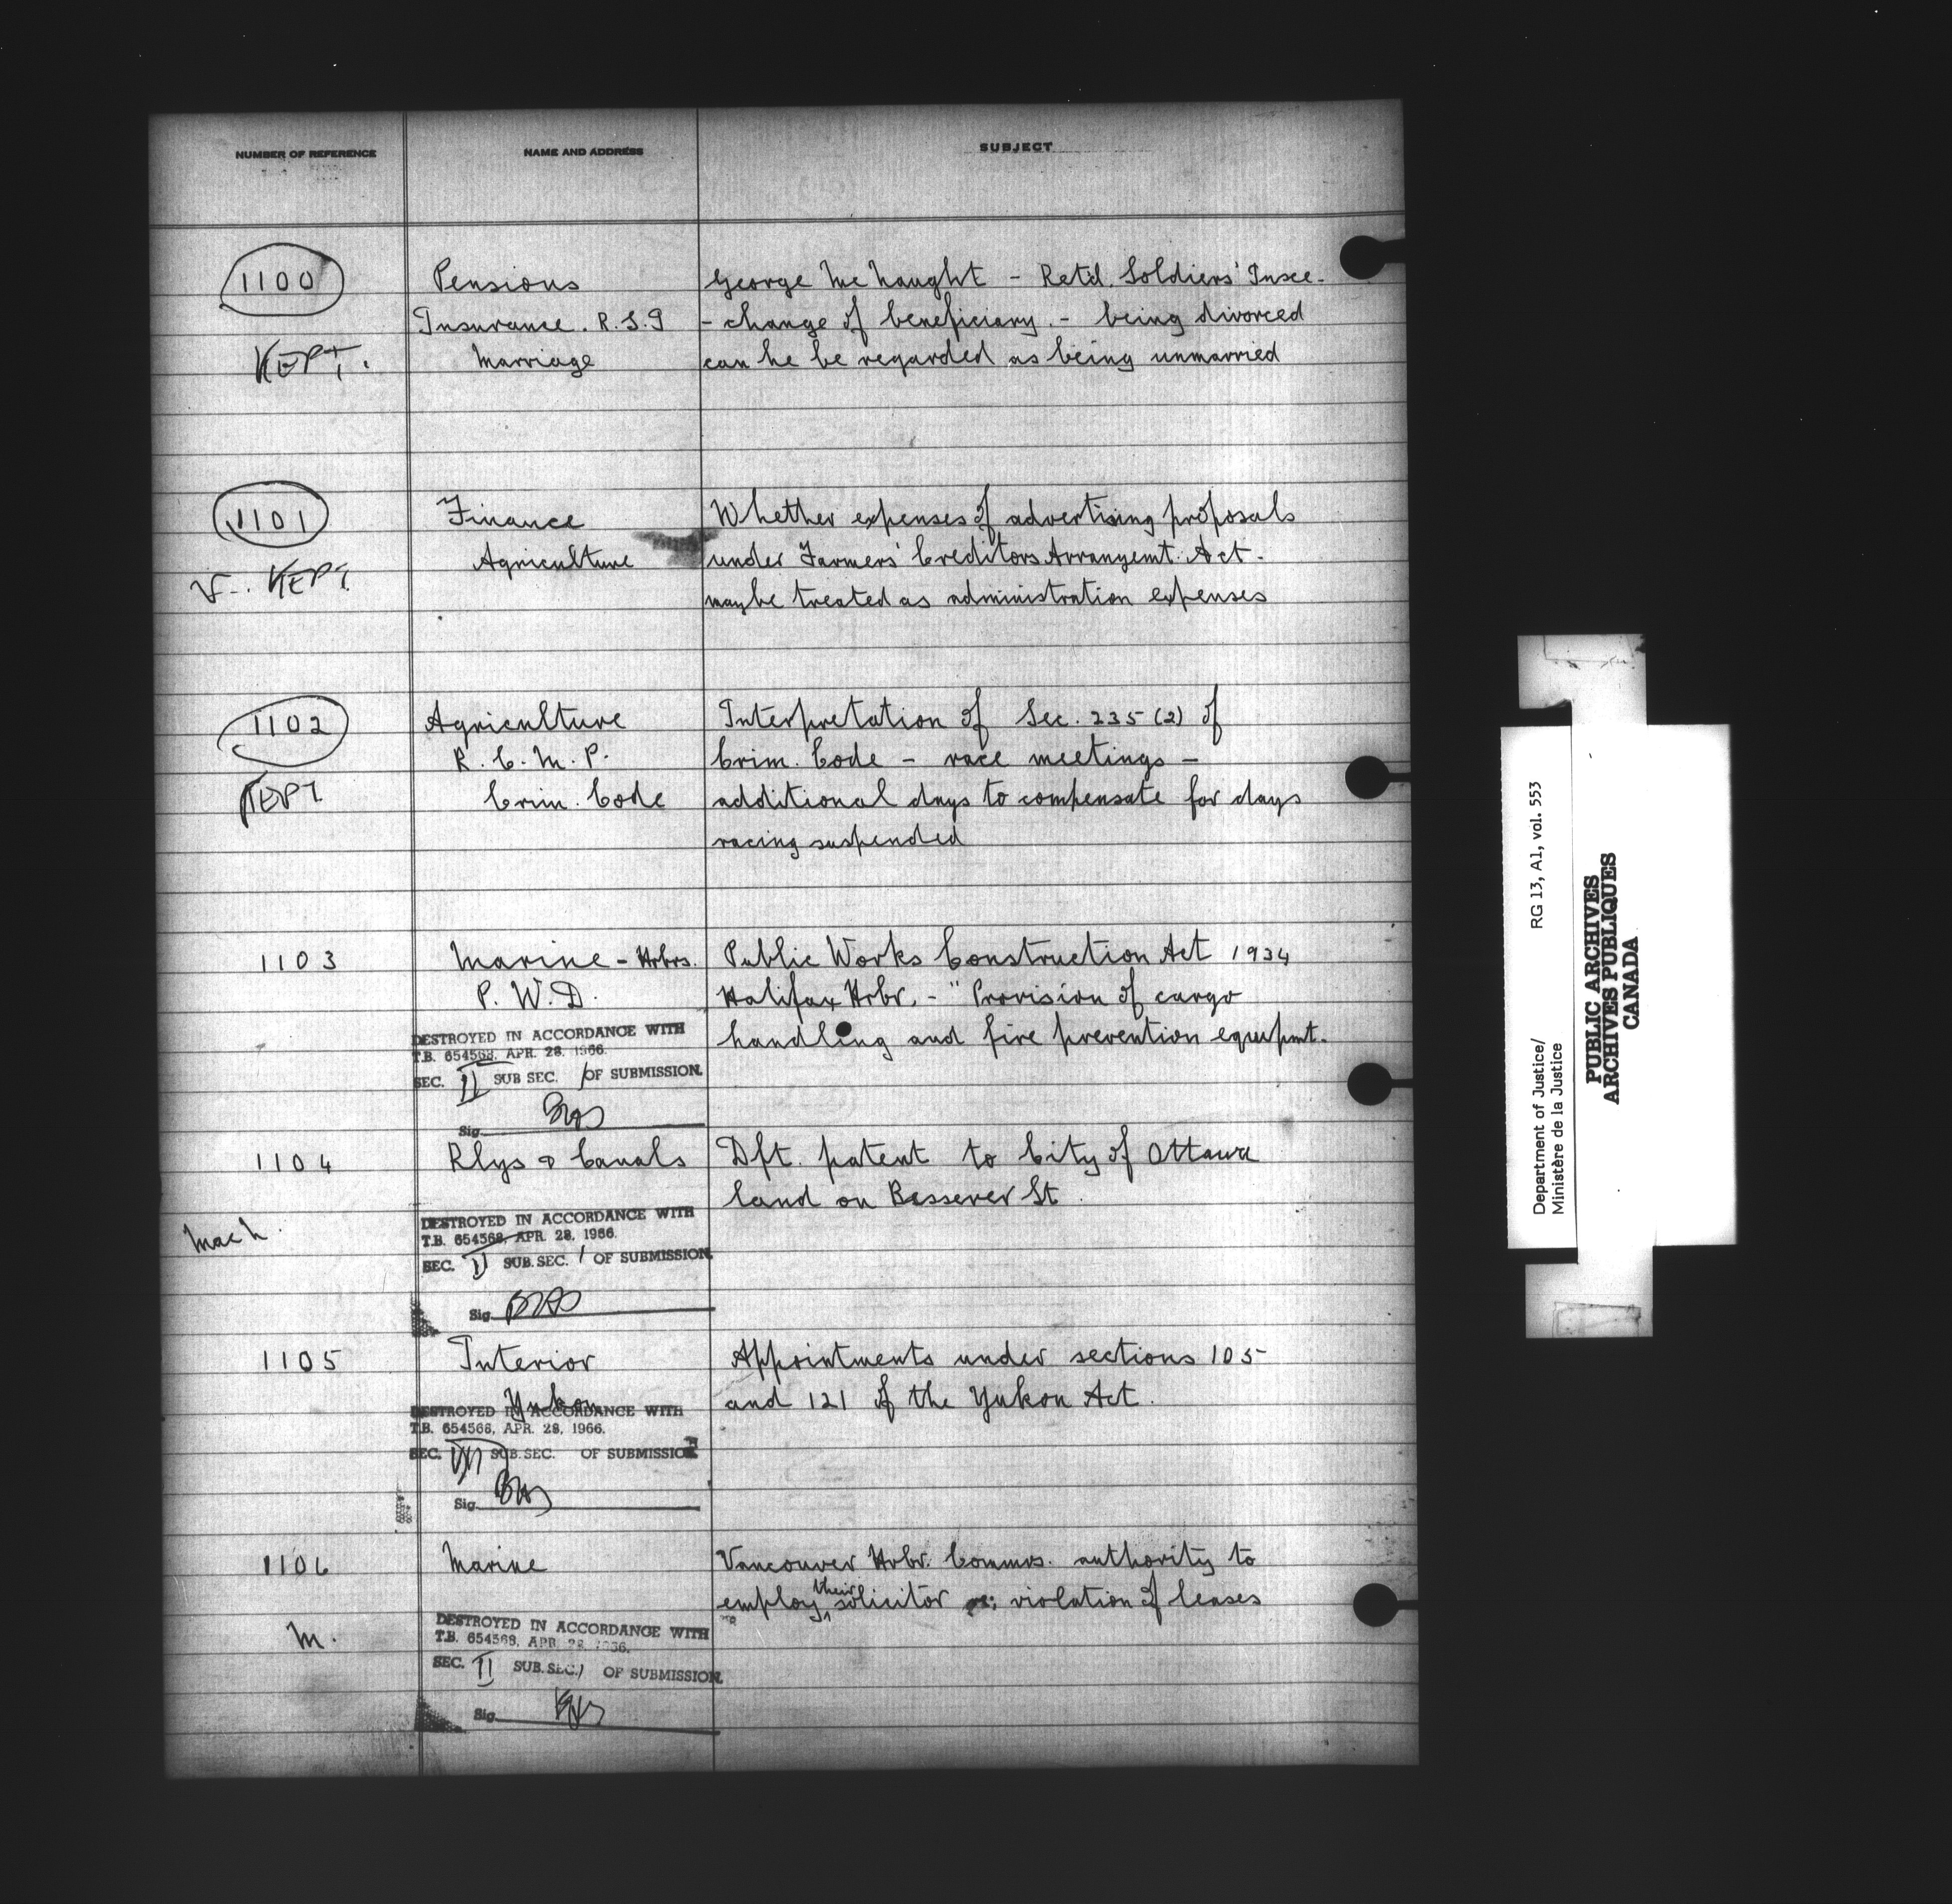 NUMBER OF REFERENCE
NAME AND ADDRESS
SUBJECT
1100
KEPT.
Pensions
Insurance. R.S.I
Marriage
George McNaught - Retd. Soldiers' Insce.
- change of beneficiary. - being divorced
can he be regarded as being unmarried
1101
KEPT
Finance
Agriculture
Whether expenses of advertising proposals
under Farmers' Creditors Arrangemt. Act.
may be treated as administration expenses
1102
KEPT
Agriculture
R.C.M.P.
Crim. Code
Interpretation of Sec. 235 (2) of
Crim. Code - race meetings -
additional days to compensate for days
racing suspended
1103
Marine - Hrbrs.
P.W.D.
DESTROYED IN ACCORDANCE WITH
T.B. 654568, APR. 28, 1966.
SEC. II SUB SEC. 1 OF SUBMISSION.
Sig.
Public Works Construction Act 1934
Halifax Hrbr. - "Provision of cargo
handling and fire prevention equipmt.
1104
Mach.
Rlys & Canals
DESTROYED IN ACCORDANCE WITH
T.B. 654568, APR. 28, 1966.
SEC. II SUB. SEC. 1 OF SUBMISSION.
Sig.
Dft. patent to City of Ottawa
land on Besserer St.
1105
Interior
Yukon
DESTROYED IN ACCORDANCE WITH
T.B. 654568, APR. 28, 1966.
SEC. SUB. SEC. OF SUBMISSION
Sig.
Appointments under sections 105
and 121 of the Yukon Act.
1106
M.
Marine
DESTROYED IN ACCORDANCE WITH
T.B. 654568, APR. 28, 1966.
SEC. II SUB. SEC. 1 OF SUBMISSION.
Sig.
Vancouver Hrbr. Commrs. authority to
employ their solicitor re: violation of leases
Department of Justice/ RG 13, A1, vol. 553
Ministère de la Justice
PUBLIC ARCHIVES
ARCHIVES PUBLIQUES
CANADA